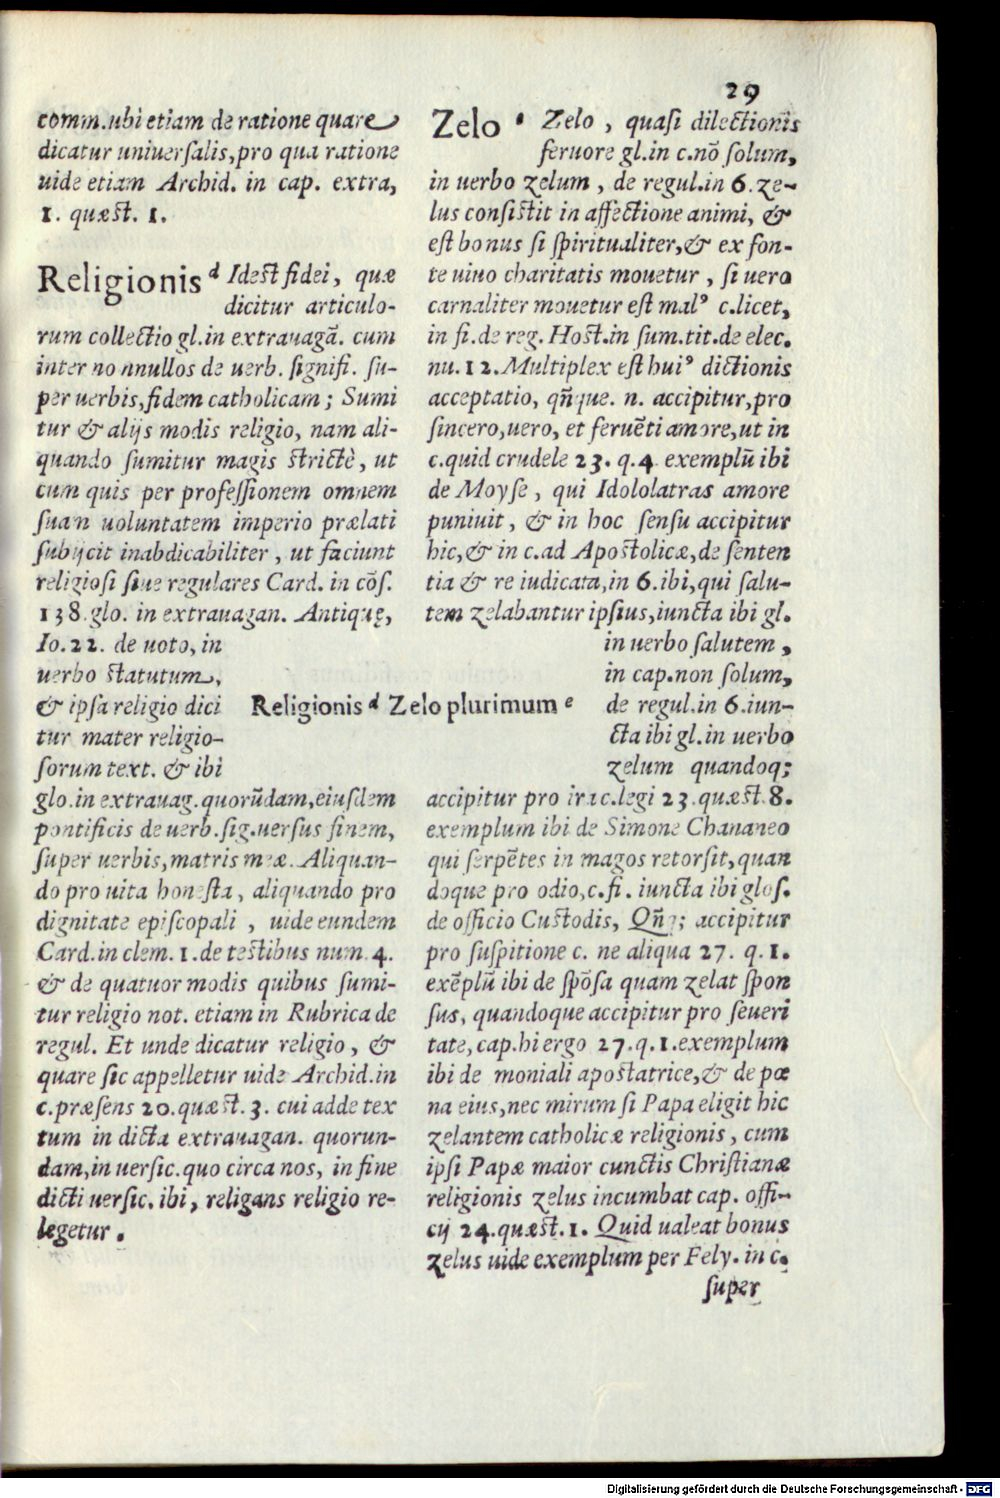 29
comm.ubi etiam de ratione quare
dicatur uniuerſalis,pro qua ratione
uide etiam Archid. in cap. extra,
1. quæst. 1.
Religionis d Idest fidei, quæ
dicitur articulo-
rum collectio gl.in extrauagã. cum
inter no nnullos de uerb. ſignifi. ſu-
per uerbis,fidem catholicam; Sumi
tur & alijs modis religio, nam ali-
quando ſumitur magis strictè, ut
cum quis per profeſſionem omnem
ſuan uoluntatem imperio prælati
ſubijcit inabdicabiliter, ut faciunt
religioſi ſiue regulares Card. in cõſ.
138.glo. in extrauagan. Antiquę,
Io.22. de uoto, in
uerbo statutum,
& ipſa religio dici
tur mater religio-
ſorum text. & ibi
glo.in extrauag.quorũdam,eiuſdem
pontificis de uerb.ſig.uerſus finem,
ſuper uerbis,matris meæ. Aliquan-
do pro uita honesta, aliquando pro
dignitate epiſcopali , uide eundem
Card.in clem. 1.de testibus num. 4.
& de quatuor modis quibus ſumi-
tur religio not. etiam in Rubrica de
regul. Et unde dicatur religio, &
quare ſic appelletur uide Archid.in
c.præſens 20.quæst. 3. cui adde tex
tum in dicta extrauagan. quorun-
dam,in uerſic.quo circa nos, in fine
dicti uerſic. ibi, religans religio re-
legetur.
Religionis d Zelo plurimum e
Zelo e Zelo , quaſi dilectionis
feruore gl.in c.nõ ſolum,
in uerbo zelum , de regul.in 6. ze-
lus conſistit in affectione animi, &
est bonus ſi ſpiritualiter,& ex fon-
te uiuo charitatis mouetur , ſi uero
carnaliter mouetur est malꝰ c.licet,
in fi.de reg. Host.in ſum.tit.de elec.
nu.12.Multiplex est huiꝰ dictionis
acceptatio, qñque. n. accipitur,pro
ſincero,uero, et feruẽti amore,ut in
c.quid crudele 23. q.4. exemplũ ibi
de Moyſe , qui Idololatras amore
puniuit, & in hoc ſenſu accipitur
hic,& in c.ad Apostolicæ,de ſenten
tia & re iudicata,in 6.ibi,qui ſalu-
tem zelabantur ipſius,iuncta ibi gl.
in uerbo ſalutem ,
in cap.non ſolum,
de regul.in 6.iun-
cta ibi gl.in uerbo
zelum quandoq;
accipitur pro ira c.legi 23.quæst.8.
exemplum ibi de Simone Chananeo
qui ſerpẽtes in magos retorſit,quan
doque pro odio,c.fi. iuncta ibi gloſ.
de officio Custodis, Qñq; accipitur
pro ſuſpitione c. ne aliqua 27. q.1.
exẽplũ ibi de ſpõſa quam zelat ſpon
ſus, quandoque accipitur pro ſeueri
tate,cap.hi ergo 27.q.1.exemplum
ibi de moniali apostatrice,& de pœ
na eius,nec mirum ſi Papa eligit hic
zelantem catholicæ religionis, cum
ipſi Papæ maior cunctis Christianæ
religionis zelus incumbat cap. offi-
cij 24.quæst.1. Quid ualeat bonus
zelus uide exemplum per Fely. in c.
ſuper
Digitalisierung gefördert durch die Deutsche Forschungsgemeinschaft - DFG